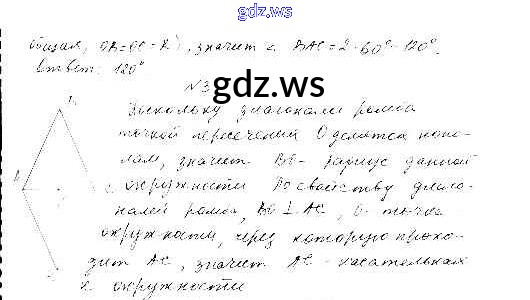 gdz.ws
общая, OB=OC=R), значит ∠ BAC=2·60°=120°.
Ответ: 120°
N 3
gdz.ws
Поскольку диагонали ромба
точкой пересечения O делятся попо-
лам, значит BO - радиус данной
окружности По свойству диаго-
налей ромба, BO ⊥ AC, O - точка
окружности, через которую прохо-
дит AC, значит AC - касательная
к окружности